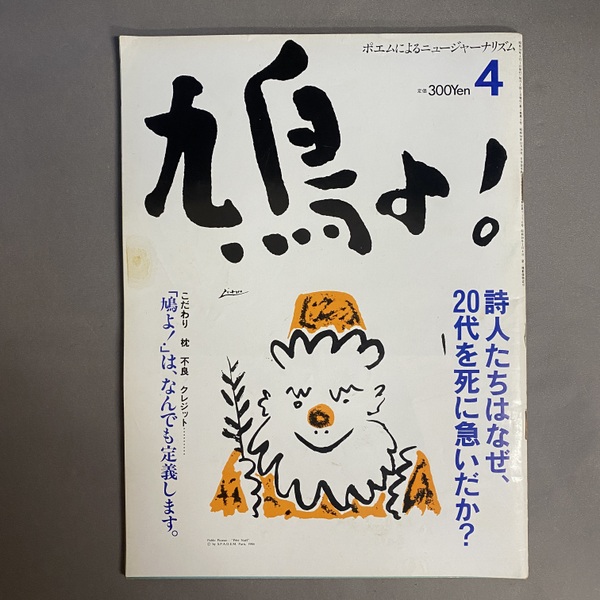 ポエムによるニュージャーナリズム
定価 300Yen 4
鳩よ!
詩人たちはなぜ、
20代を死に急いだか?
こだわり 枕 不良 クレジット…………
「鳩よ!」は、なんでも定義します。